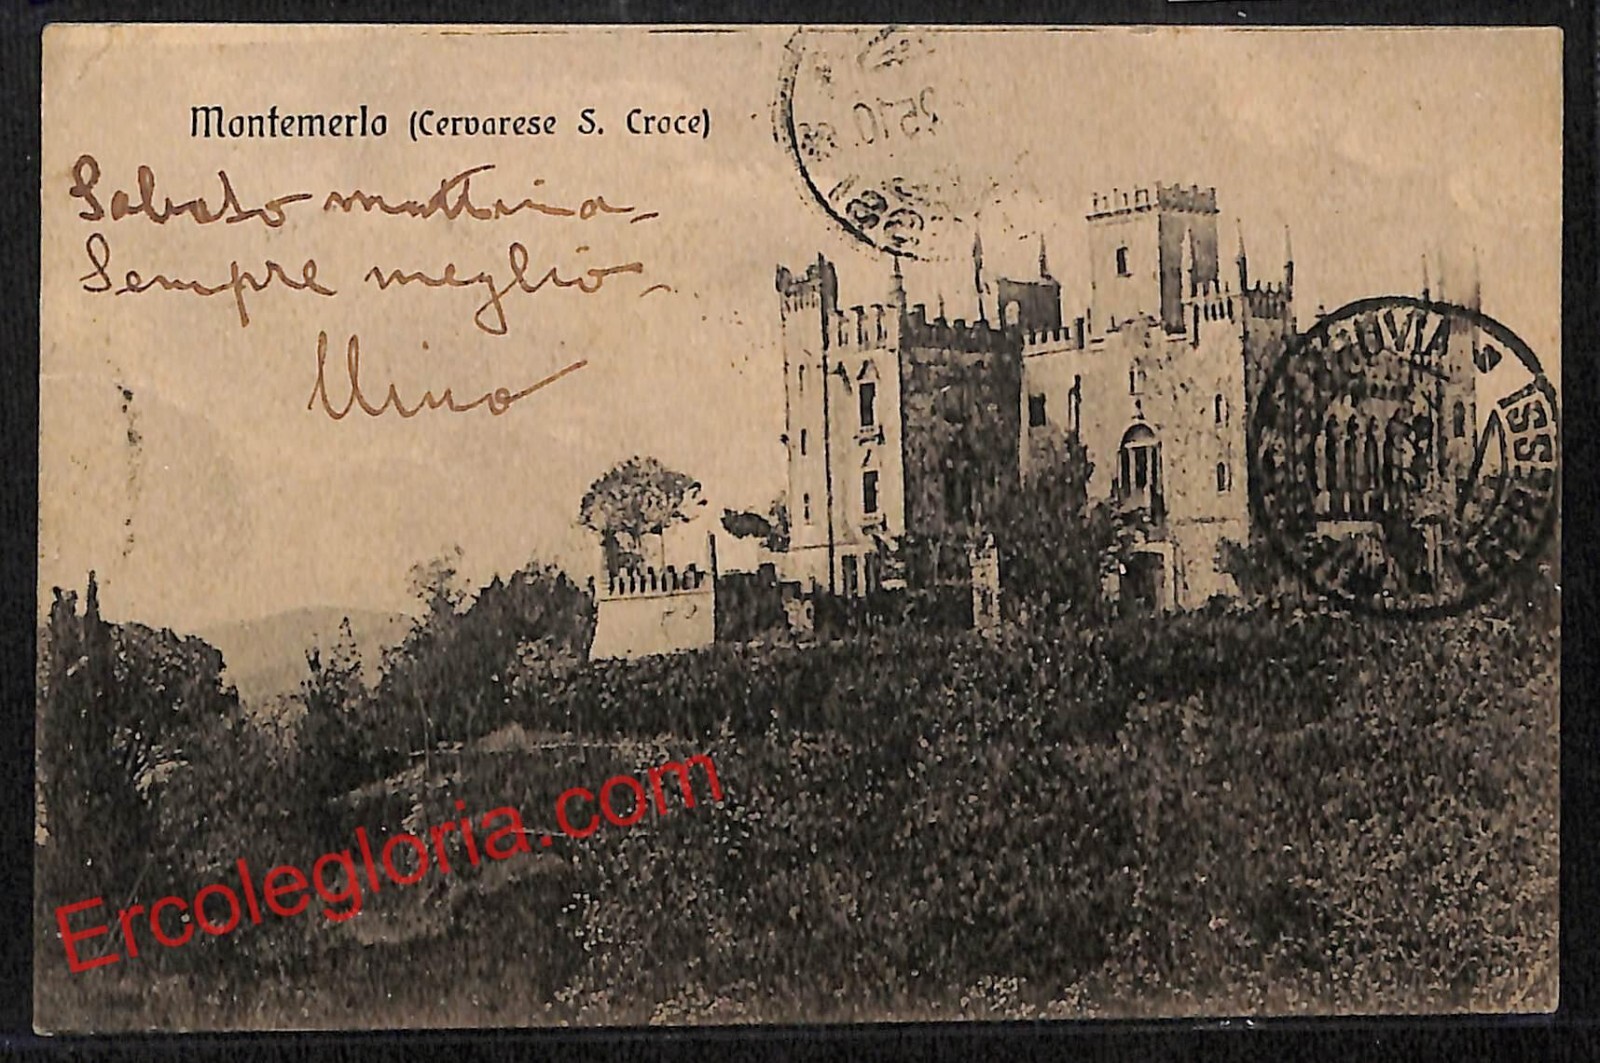 Montemerlo (Cervarese S. Croce)
Sabato mattina -
Sempre meglio -
Nino
ESPRESSI
Ercolegloria.com